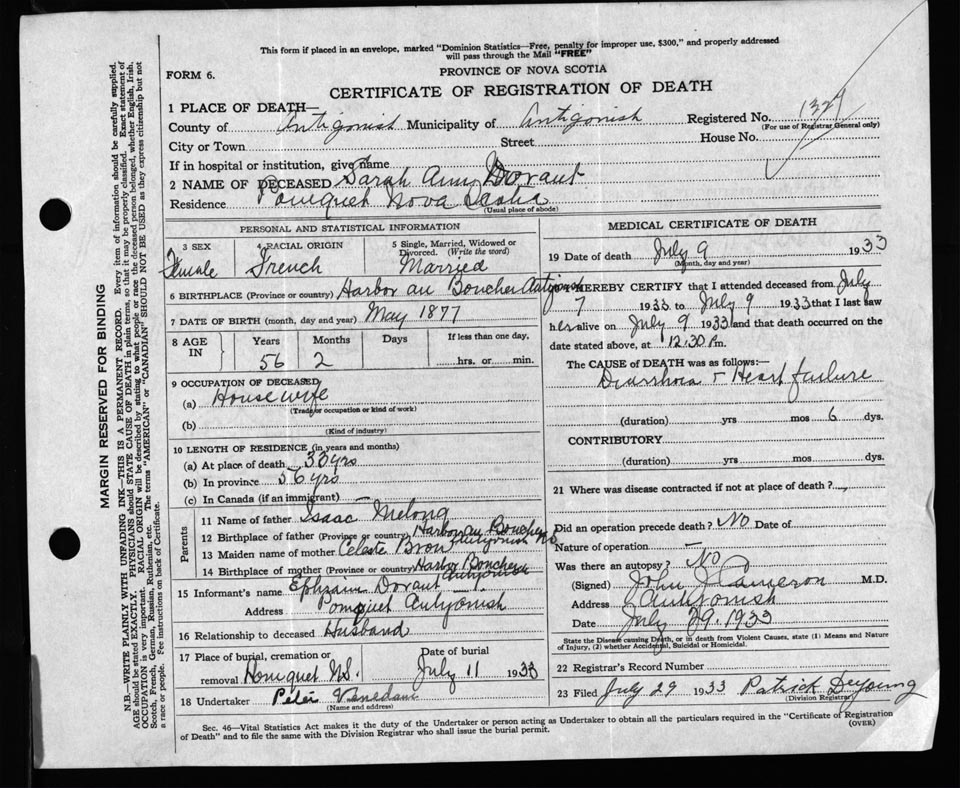 This form if placed in an envelope, marked "Dominion Statistics—Free, penalty for improper use, $300," and properly addressed
will pass through the Mail "FREE"
FORM 6.
PROVINCE OF NOVA SCOTIA
CERTIFICATE OF REGISTRATION OF DEATH
1 PLACE OF DEATH—
County of Antigonish Municipality of Antigonish Registered No. 1329
(For use of Registrar General only)
City or Town Street House No.
If in hospital or institution, give name
2 NAME OF DECEASED Sarah Ann Dorant
Residence Pomquet Nova Scotia
(Usual place of abode)
MARGIN RESERVED FOR BINDING
N.B.—WRITE PLAINLY WITH UNFADING INK—THIS IS A PERMANENT RECORD. Every item of information should be carefully supplied.
AGE should be stated EXACTLY. PHYSICIANS should STATE CAUSE OF DEATH in plain terms, so that it may be properly classified. Exact statement of
OCCUPATION is very important. RACIAL ORIGIN will be described by stating to what people or race the deceased person belonged, whether English, Irish,
Scotch, French, German, Russian, Ruthenian, etc. The terms "AMERICAN" or "CANADIAN" SHOULD NOT BE USED as they express citizenship but not
a race or people. See instructions on back of Certificate.
PERSONAL AND STATISTICAL INFORMATION
3 SEX Female
4 RACIAL ORIGIN French
5 Single, Married, Widowed or
Divorced. (Write the word)
Married
6 BIRTHPLACE (Province or country) Harbor au Boucher Antigonish
7 DATE OF BIRTH (month, day and year) May 1877
8 AGE IN Years 56 Months 2 Days If less than one day,
hrs. or min.
9 OCCUPATION OF DECEASED
(a) Housewife
(Trade or occupation or kind of work)
(b)
(Kind of industry)
10 LENGTH OF RESIDENCE (in years and months)
(a) At place of death 33 yrs
(b) In province 56 yrs
(c) In Canada (if an immigrant) —
Parents
11 Name of father Isaac Melong
12 Birthplace of father (Province or Country) Harbor au Boucher NS
Antigonish
13 Maiden name of mother Celeste Bron
14 Birthplace of mother (Province or country) Harbor Boucher
Antigonish
15 Informant's name Ephraim Dorant
Address Pomquet Antigonish
16 Relationship to deceased Husband
17 Place of burial, cremation or
removal Pomquet N.S.
Date of burial
July 11 1933
18 Undertaker Peter
(Name and address)
MEDICAL CERTIFICATE OF DEATH
19 Date of death July 9 1933
(Month, day and year)
HEREBY CERTIFY that I attended deceased from July
7 1933 to July 9 1933 that I last saw
her alive on July 9 1933 and that death occurred on the
date stated above, at 12.30 Pm.
The CAUSE OF DEATH was as follows:—
Diarrhoea + Heart failure
(duration) yrs mos 6 dys.
CONTRIBUTORY
(duration) yrs mos dys.
21 Where was disease contracted if not at place of death?
Did an operation precede death? No Date of
Nature of operation —
Was there an autopsy? No
(Signed) John J Cameron M.D.
Address Antigonish
Date July 29. 1933
State the Disease causing Death, or in death from Violent Causes, state (1) Means and Nature
of Injury, (2) whether Accidental, Suicidal or Homicidal.
22 Registrar's Record Number
23 Filed July 29 1933 Patrick DeYoung
(Division Registrar)
Sec. 46—Vital Statistics Act makes it the duty of the Undertaker or person acting as Undertaker to obtain all the particulars required in the "Certificate of Registration
of Death" and to file the same with the Division Registrar who shall issue the burial permit. (OVER)